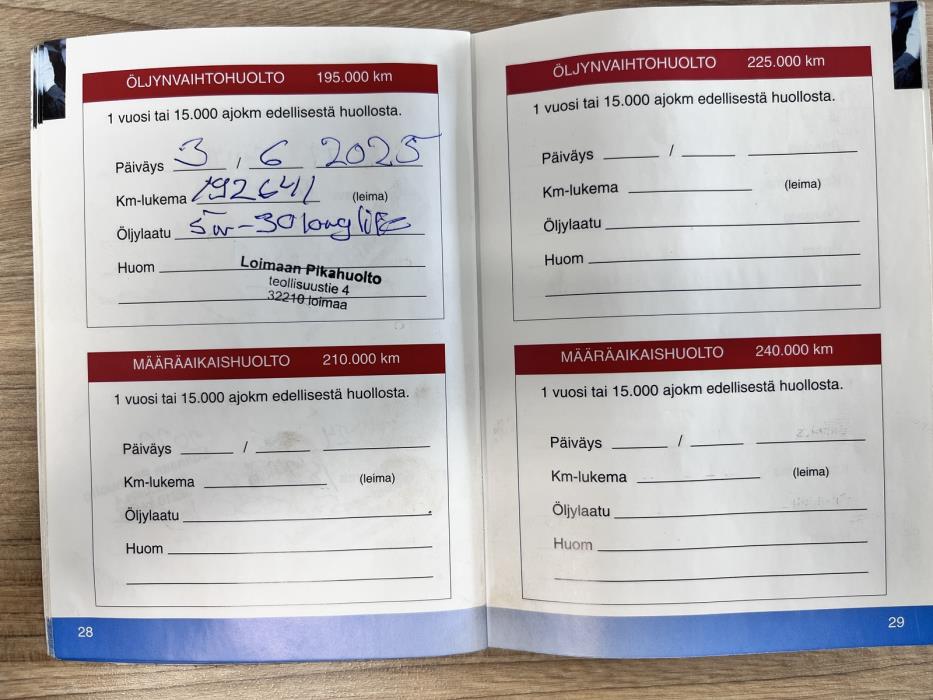 ÖLJYNVAIHTOHUOLTO 195.000 km
1 vuosi tai 15.000 ajokm edellisestä huollosta.
Päiväys 3 / 6 2025
Km-lukema 192641 (leima)
Öljylaatu 5w-30 longlife
Huom
Loimaan Pikahuolto
teollisuustie 4
32210 loimaa
MÄÄRÄAIKAISHUOLTO 210.000 km
1 vuosi tai 15.000 ajokm edellisestä huollosta.
Päiväys /
Km-lukema (leima)
Öljylaatu
Huom
28
ÖLJYNVAIHTOHUOLTO 225.000 km
1 vuosi tai 15.000 ajokm edellisestä huollosta.
Päiväys /
Km-lukema (leima)
Öljylaatu
Huom
MÄÄRÄAIKAISHUOLTO 240.000 km
1 vuosi tai 15.000 ajokm edellisestä huollosta.
Päiväys /
Km-lukema (leima)
Öljylaatu
Huom
29